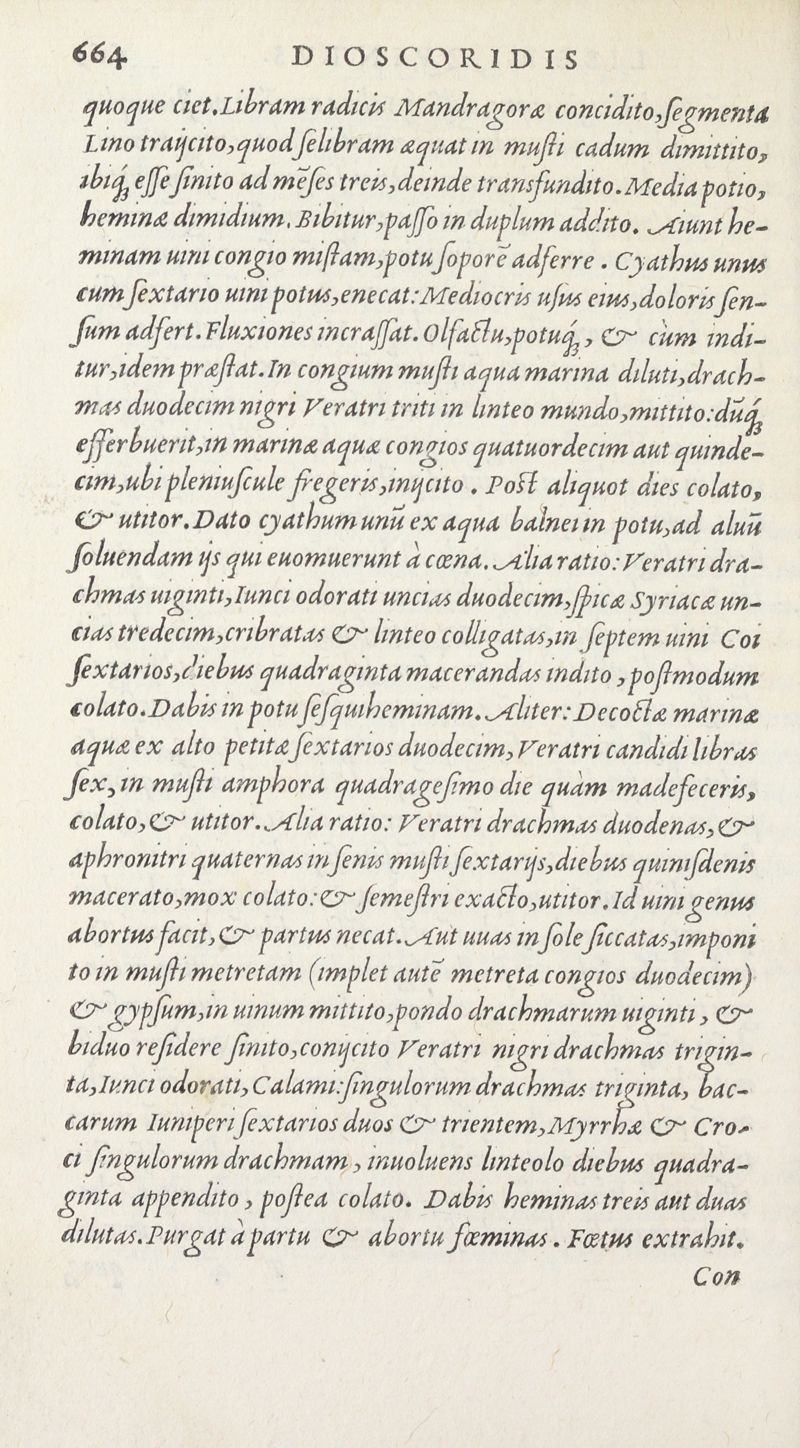 664 DIOSCORIDIS
quoque ciet. Libram radicis Mandragoræ concidito, ſegmenta
Lino traijcito, quod ſelibram æquat in muſti cadum dimittito,
ibiq́ꝫ eſſe ſinito ad mēſes treis, deinde transfundito. Media potio,
heminæ dimidium. Bibitur, paſſo in duplum addito. Aiunt he-
minam uini congio miſtam, potu ſoporē adferre. Cyathus unus
cum ſextario uini potus, enecat: Mediocris uſus eius, doloris ſen-
ſum adfert. Fluxiones incraſſat. Olfactu, potuq́ꝫ, & cùm indi-
tur, idem præſtat. In congium muſti aqua marina diluti, drach-
mas duodecim nigri Veratri triti in linteo mundo, mittito: dūq́ꝫ
efferbuerit, in marinæ aquæ congios quatuordecim aut quinde-
cim, ubi pleniuſcule fregeris, inijcito. Poſt aliquot dies colato,
& utitor. Dato cyathum unū ex aqua balnei in potu, ad aluū
ſoluendam ijs qui euomuerunt à cœna. Alia ratio: Veratri dra-
chmas uiginti, Iunci odorati uncias duodecim, ſpicæ Syriacæ un-
cias tredecim, cribratas & linteo colligatas, in ſeptem uini Coi
ſextarios, diebus quadraginta macerandas indito, poſtmodum
colato. Dabis in potu ſeſquiheminam. Aliter: Decoctæ marinæ
aquæ ex alto petitæ ſextarios duodecim, Veratri candidi libras
ſex, in muſti amphora quadrageſimo die quàm madefeceris,
colato, & utitor. Alia ratio: Veratri drachmas duodenas, &
aphronitri quaternas in ſenis muſti ſextarijs, diebus quiniſdenis
macerato, mox colato: & ſemeſtri exacto, utitor. Id uini genus
abortus facit, & partus necat. Aut uuas in ſole ſiccatas, imponi
to in muſti metretam (implet autē metreta congios duodecim)
& gypſum, in uinum mittito, pondo drachmarum uiginti, &
biduo reſidere ſinito, conijcito Veratri nigri drachmas trigin-
ta, Iunci odorati, Calami: ſingulorum drachmas triginta, bac-
carum Iuniperi ſextarios duos & trientem, Myrrhæ & Cro-
ci ſingulorum drachmam, inuoluens linteolo diebus quadra-
ginta appendito, poſtea colato. Dabis heminas treis aut duas
dilutas. Purgat à partu & abortu fœminas. Fœtus extrahit.
Con